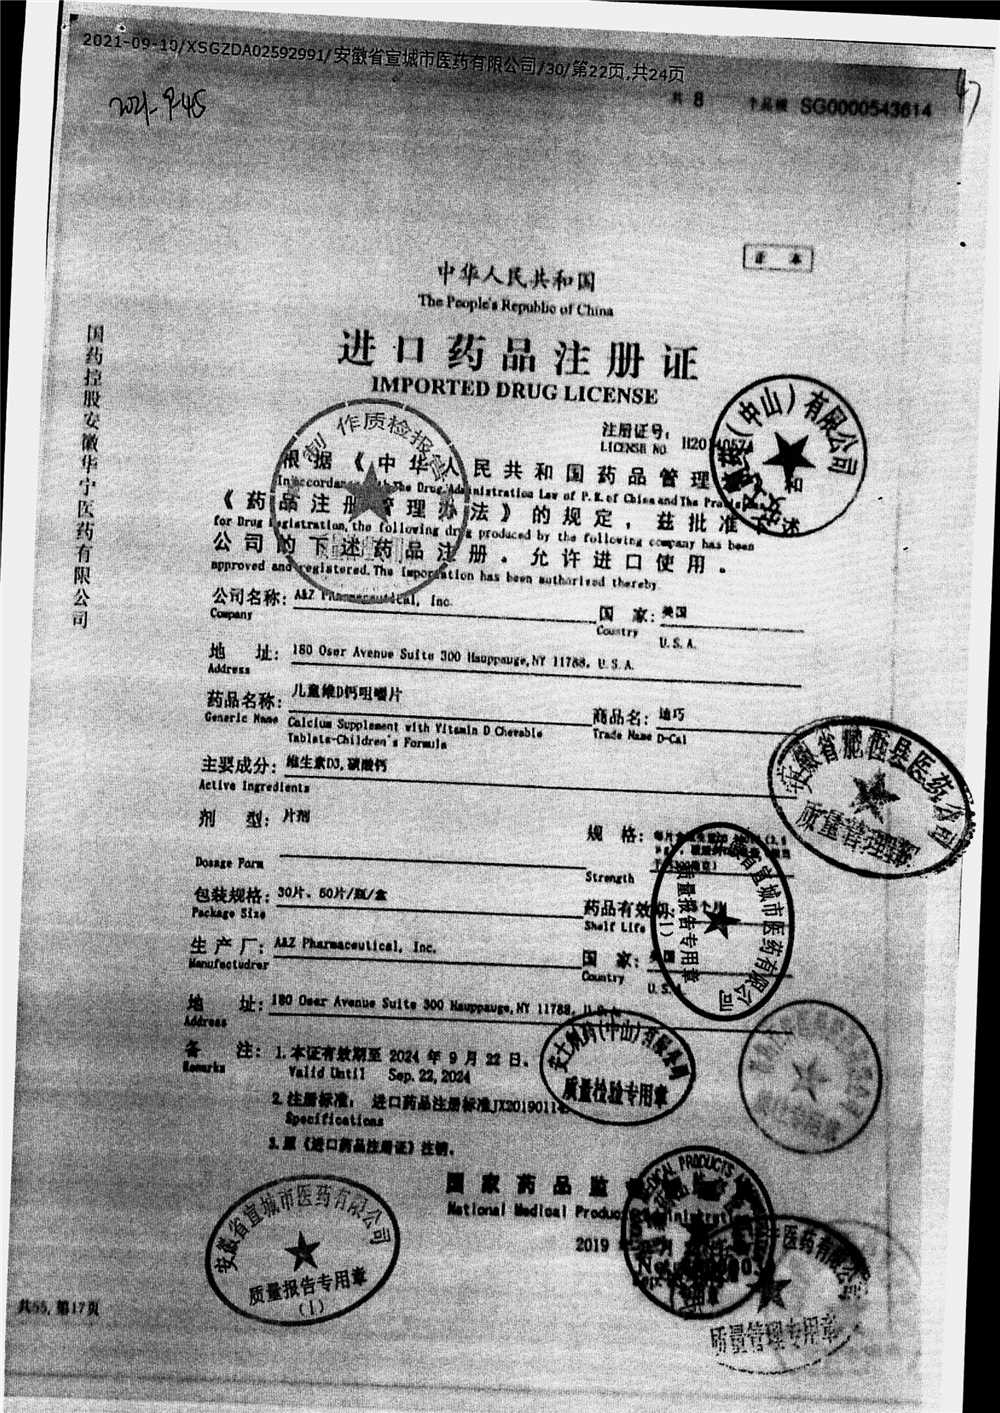 2021-09-10/XSGZDA02592991/安徽省宣城市医药有限公司/30/第22页,共24页
共 8
SG0000543614
正 本
中华人民共和国
The People's Republic of China
进口药品注册证
IMPORTED DRUG LICENSE
国药控股安徽华宁医药有限公司
注册证号:
LICENSE NO.
根据《中华人民共和国药品管理
In accordance with the Drug Administration Law of P.R.of China and The
《药品注册管理办法》的规定，兹批准 述
for Drug Registration, the following drug produced by the following company has been
公司的下述药品注册。允许进口使用。
approved and registered. The importation has been authorized thereby.
公司名称: A&Z Pharmaceutical, Inc.
Company
国 家: 美国
Country U.S.A.
地 址: 180 Oser Avenue Suite 300 Hauppauge,NY 11788, U.S.A.
Address
药品名称: 儿童维D钙咀嚼片
Generic Name Calcium Supplement with Vitamin D Chewable
Tablets-Children's Formula
商品名: 迪巧
Trade Name D-Cal
主要成分: 维生素D3,碳酸钙
Active Ingredients
剂 型: 片剂
Dosage Form
规 格:
Strength
包装规格: 30片、60片/瓶/盒
Package Size
药品有效期: 个月
Shelf Life
生 产 厂: A&Z Pharmaceutical, Inc.
Manufactudrer
国 家: 美国
Country U.S.A.
地 址: 180 Oser Avenue Suite 300 Hauppauge,NY 11788, U.S.A.
Address
备 注: 1.本证有效期至 2024 年 9 月 22 日。
Remarks Valid Until Sep.22,2024
2.注册标准: 进口药品注册标准JX2019011
Specifications
3.原《进口药品注册证》注销。
国家药品监
National Medical Products Administration
2019
安士制药(中山)有限公司
安徽省肥西县医药公司
质量管理部
安徽省宣城市医药有限公司
质量报告专用章
(1)
安士制药(中山)有限公司
质量检验专用章
安徽省宣城市医药有限公司
质量报告专用章
(1)
医药有限公司
质量管理专用章
共55,第17页